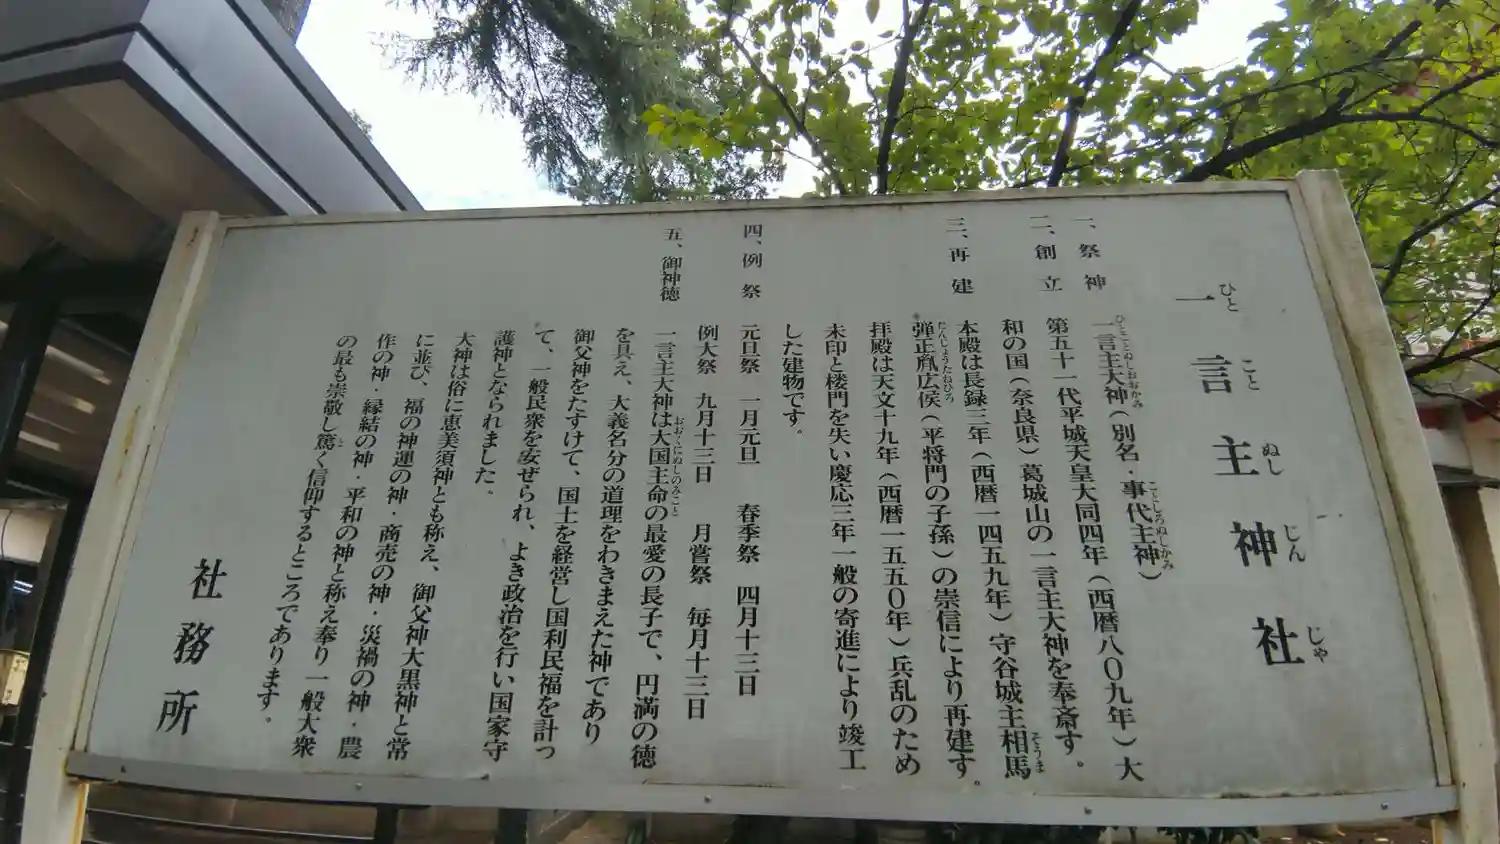 一言主神社
ひと こと ぬし じん じゃ
一、祭神 一言主大神（別名・事代主神）
ひとことぬしおおかみ ことしろぬしかみ
二、創立 第五十一代平城天皇大同四年（西暦八〇九年）大
和の国（奈良県）葛城山の一言主大神を奉斎す。
三、再建 本殿は長録三年（西暦一四五九年）守谷城主相馬
そうま
弾正胤広侯（平将門の子孫）の崇信により再建す。
だんじょうたねひろ
拝殿は天文十九年（西暦一五五〇年）兵乱のため
朱印と楼門を失い慶応三年一般の寄進により竣工
した建物です。
四、例祭 元旦祭 一月元旦 春季祭 四月十三日
例大祭 九月十三日 月嘗祭 毎月十三日
五、御神徳 一言主大神は大国主命の最愛の長子で、円満の徳
おおくにぬしのみこと
を具え、大義名分の道理をわきまえた神であり
御父神をたすけて、国土を経営し国利民福を計っ
て、一般民衆を安せられ、よき政治を行い国家守
護神となられました。
大神は俗に恵美須神とも称え、御父神大黒神と常
に並び、福の神運の神・商売の神・災禍の神・農
作の神・縁結の神・平和の神と称え奉り一般大衆
の最も崇敬し篤く信仰するところであります。
社務所